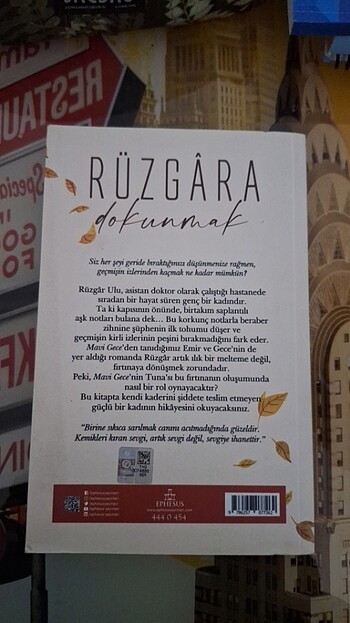 RESTAU
Specia
RÜZGÂRA
dokunmak
Siz her şeyi geride bıraktığınızı düşünmenize rağmen,
geçmişin izlerinden kaçmak ne kadar mümkün?
Rüzgâr Ulu, asistan doktor olarak çalıştığı hastanede
sıradan bir hayat süren genç bir kadındır.
Ta ki kapısının önünde, birtakım saplantılı
aşk notları bulana dek... Bu korkunç notlarla beraber
zihnine şüphenin ilk tohumu düşer ve
geçmişin kirli izlerinin peşini bırakmadığını fark eder.
Mavi Gece'den tanıdığımız Emir ve Gece'nin de
yer aldığı romanda Rüzgâr artık ılık bir melteme değil,
fırtınaya dönüşmek zorundadır.
Peki, Mavi Gece'nin Tuna'sı bu fırtınanın oluşumunda
nasıl bir rol oynayacaktır?
Bu kitapta kendi kaderini şiddete teslim etmeyen
güçlü bir kadının hikâyesini okuyacaksınız.
"Birine sıkıca sarılmak canını acıtmadığında güzeldir.
Kemikleri kıran sevgi, artık sevgi değil, sevgiye ihanettir."
EPHESUS
www.ephesusyayinlari.com
444 0 454